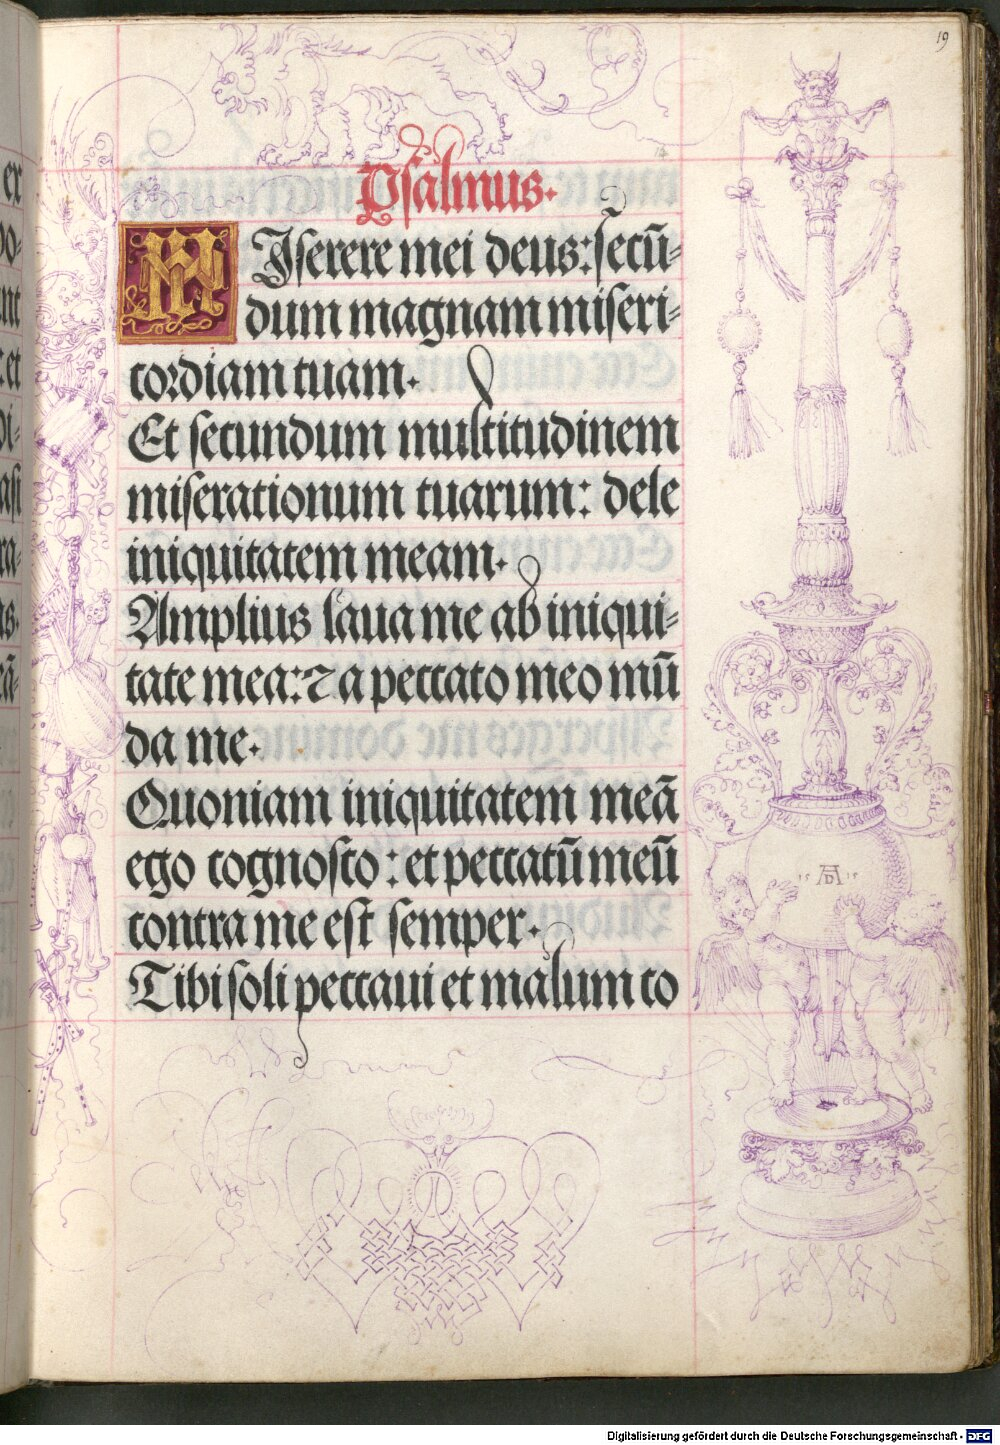 19
14
Psalmus.
MIserere mei deus: secū-
dum magnam miseri-
cordiam tuam.
Et secundum multitudinem
miserationum tuarum: dele
iniquitatem meam.
Amplius laua me ab iniqui-
tate mea: ⁊ a peccato meo mū
da me.
Quoniam iniquitatem meā
ego cognosco: et peccatū meū
contra me est semper.
Tibi soli peccaui et malum co
15 AD 15
Digitalisierung gefördert durch die Deutsche Forschungsgemeinschaft - DFG